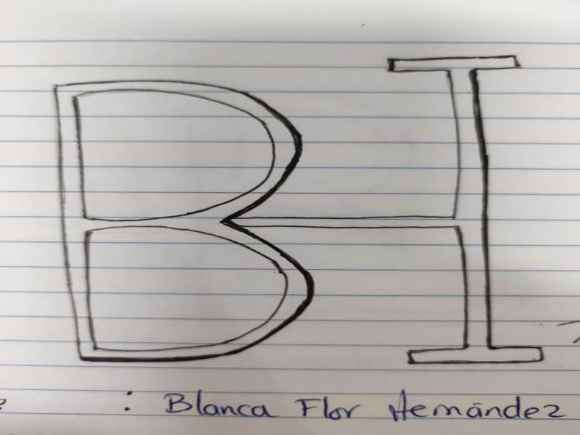 BH
: Blanca Flor Hernández